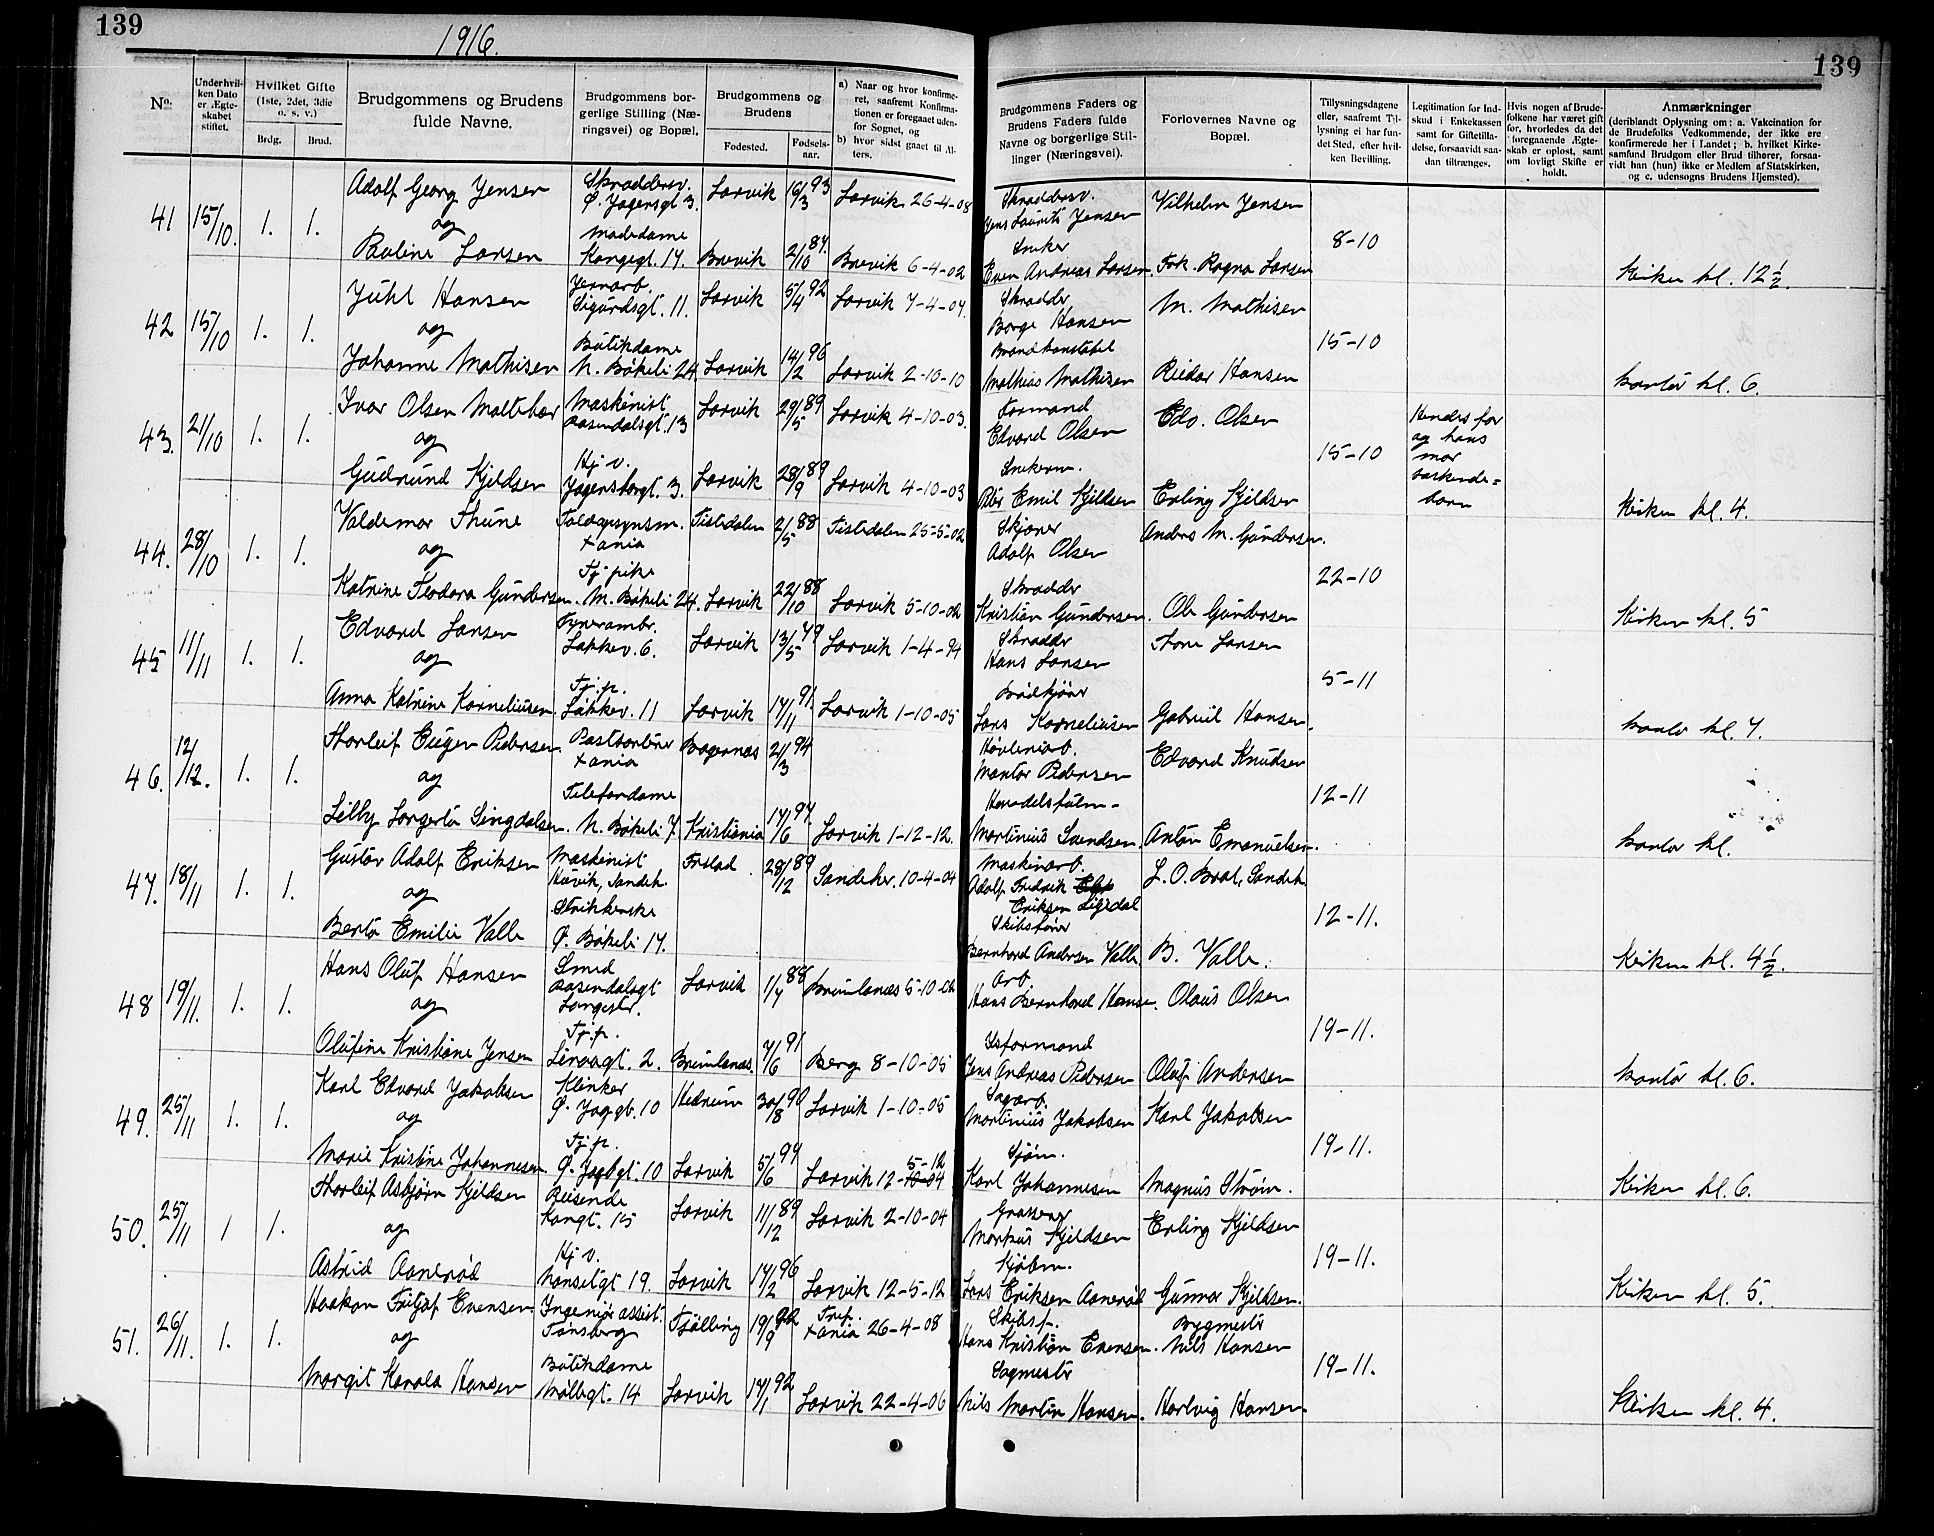 139
1916.
139
No.
Underhvil-
ken Dato
er Ægte-
skabet
stiftet.
Hvilket Gifte
(1ste, 2det, 3die
o. s. v.)
Brdg.
Brud.
Brudgommens og Brudens
fulde Navne.
Brudgommens bor-
gerlige Stilling (Næ-
ringsvei) og Bopæl.
Brudgommens og
Brudens
Fødested.
Fødsels-
aar.
a) Naar og hvor konfirme-
ret, saafremt Konfirma-
tionen er foregaaet uden-
for Sognet, og
b) hvor sidst gaaet til Al-
ters.
Brudgommens Faders og
Brudens Faders fulde
Navne og borgerlige Stil-
linger (Næringsvei).
Forlovernes Navne og
Bopæl.
Tillysningsdagene
eller, saafremt Til-
lysning ei har fun-
det Sted, efter hvil-
ken Bevilling.
Legitimation for Ind-
skud i Enkekassen
samt for Giftetilla-
delse, forsaavidt saa-
dan tiltrænges.
Hvis nogen af Brude-
folkene har været gift
før, hvorledes da det
foregaaende Ægte-
skab er opløst, samt
om lovligt Skifte er
holdt.
Anmærkninger
(deriblandt Oplysning om: a. Vakcination for
de Brudefolks Vedkommende, der ikke ere
konfirmerede her i Landet; b. hvilket Kirke-
samfund Brudgom eller Brud tilhører, forsaa-
vidt han (hun) ikke er Medlem af Statskirken,
og c. udensogns Brudens Hjemsted).
41 15/10. 1. 1. Adolf Georg Jensen Skræddersv. Larvik 16/3 93 Larvik 26-4-08 Skræddersv. Jens Laurits Jensen Vilhelm Jensen
og 8-10
Pauline Larsen Mødedame Kongegt. 17. Brevik 2/10 87. Brevik 6-4-02 Snekker Even Andreas Larsen. Frk. Ragna Larsen Kirken kl. 12 1/2.
42 15/10 1. 1. Juhl Hansen Jernarb. Sigurdsgt. 11. Larvik 5/4 92 Larvik 7-4-07. Skrædder Borge Hansen M. Mathisen
og 15-10
Johanne Mathisen Butikdame N. Bøkeli 24. Larvik 14/2 96 Larvik 2-10-10 Brandkonstabel Mathias Mathisen Reidar Hansen kontor kl. 6.
43. 21/10 1. 1. Ivar Olsen Maskinist Rosendalsgt. 13 Larvik 29/5 89 Larvik 4-10-03. Formand Edvard Olsen Edv. Olsen Hendes far og hans mor søskende=barn
og 15-10
Gudrund Kjeldsen Hj. v. Larvik 28/9 89 Larvik 4-10-03 Snekerm. Emil Kjeldsen Erling Kjeldsen Kirken kl. 4.
44. 28/10 1. 1. Valdemar Thune Xania Tistedalen 2/5 88 Tistedalen 25-5-02 Adolf Olsen Anders M. Gundersen.
og 22-10
Katrine Teodora Gundersen. Tj. pike N. Bøkeli 24. Larvik 22/10 88 Larvik 5-10-02 Skrædder Kristian Gundersen. Ole Gundersen Kirken kl. 5
45 11/11 1. 1. Edvard Larsen Løkkev. 6. Larvik 13/5 79 Larvik 1-4-94 Skrædder Hans Larsen Arne Larsen
og 5-11
Anna Katrine Korneliusen Tj. p. Løkkev. 11 Larvik 17/11 91 Larvik 1-10-05 Lars Korneliusen Gabriel Hansen. kontor kl. 7.
46. 12/12. 1. 1. Thorleif Eugen Pedersen. Xania Bragernæs 21/3 94 Høvleriarb. Edvard Knudsen
og 12-11
Telefondame N. Bøkeli 7. Kristiania 17/6 94 Larvik 1-12-12. Martinius Svendsen Anton Emanuelsen. kontor kl.
47. 18/11 1. 1. Gustav Adolf Eriksen Maskinist Fr.stad. 28/12 89 Sandeher. 10-4-04 Maskinarb. Adolf Fredrik Eriksen
og 12-11.
Berta Emilie Valle Strikkerske Ø. Bøkeli 17. Skibsfører Bernhard Andersen Valle. B. Valle. Kirken kl. 4 1/2.
48 19/11. 1. 1. Hans Oluf Hansen Smed Rosendalsgt Langestr. Larvik 1/7 88 Brunlanæs 5-10-02 Arb. Hans Bernhard Hansen. Olaus Olsen
og 19-11.
Olufine Kristiane Jensen Tj. p. Brunlanæs. 7/6 91 Berg 8-10-05 Isformand Jens Andreas Pedersen Oluf Andersen kontor kl. 6.
49. 25/11 1. 1. Karl Edvard Jakobsen Klinker Hedrum 30/8 90 Larvik 1-10-05 Sagarb. Martinius Jakobsen Karl Jakobsen
og 19-11.
Marie Kristine Johannesen Tj. p. Larvik 5/6 97 Larvik 12-5-12 Sjøm. Karl Johannesen Magnus Strøm. Kirken kl. 6.
50. 25/11 1 1. Thorleif Asbjørn Kjeldsen Reisende Kongt. 15 Larvik 11/12 89 Larvik 2-10-04 Markus Kjeldsen Erling Kjeldsen
og 19-11.
Astrid Aanerød Hj. v. Nansetgt 19. Larvik 17/2 96 Larvik 12-5-12 Kjøbm. Lars Eriksen Aanerød Gunnar Kjeldsen. Kirken kl. 5.
51. 26/11. 1. 1. Haakon Fritjof Evensen Ingeniør assist. Tønsberg Tjølling 19/9 92 Xania 26-4-08 Skibsf. Hans Kristian Evensen. Bygmestr Nils Hansen
og 19-11.
Margit Karola Hansen Butikdame Møllegt. 14 Larvik 17/1 92 Larvik 22-4-06 Sagmestr Nils Martin Hansen. Hartvig Hansen Kirken kl. 4.